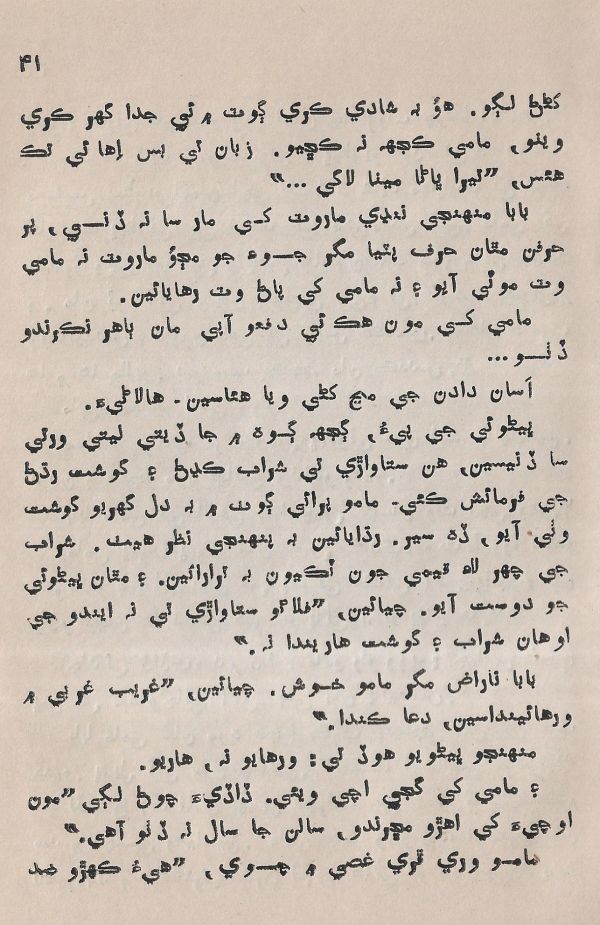 ۴۱
کڻڻ لڳو. هؤ به شادي ڪري ڳوٺ ۾ ئي جدا گهر ڪري
ويٺو، مامي ڪجهہ نہ ڪڇيو. زبان تي بس اِهائي تڪ
هئس، ”تيرا ڀاڻا مينا لاکي ...“
بابا منهنجي ننڍي ماروٽ کسي مار سا نہ ڏنسي، پر
حرفن مٿان حرف پٽيا مگر جسوءَ جو مڇؤ ماروٽ نہ مامي
وٽ موٽي آيو ۽ نہ مامي کي پاڻ وٽ رهايائين.
مامي کسي مون هڪ ئي دفعو آپي مان ٻاهر نڪرندو
ڏٺسو...
اَسان دادن جي مڃ کڻي ويا هئاسين۔ هالاڻيءَ.
ڀيڻوئي جي پيءُ، ڳجهہ ڳوهہ ۾ جا ڏيتي ليتي ورتي
سا ڏنيسين، هن ستاواڙي تي شراب ڪڍڻ ۽ گوشت رڌڻ
جي فرمائش ڪئي۔ مامو پرائي ڳوٺ ۾ بہ دل گهريو گوشت
وٺي آيو، ڏهہ سير. رڌايائين بہ پنهنجي نظر هيٺ. شراب
جي چهر لاءِ قيمي جون ٽڪيون بہ ترارائين. ۽ مٿان ڀيڻوئي
جو دوست آيو. چيائين، ”فلاڻو ستاواڙي تي نہ ايندو جي
اوهان شراب ۽ گوشت هاريندا نہ.“
بابا ناراض مگر مامو خوش. چيائين، ”غريب غربي ۾
ورهائينداسين، دعا ڪندا.“
منهنجو ڀيڻويو هوڏ تي: ورهايو نہ، هاريو.
۽ مامي کي گجي اچي ويئي. ڏاڏيءَ چوڻ لڳي ”مون
اوچيءَ کي اهڙو مڇرندو، سالن جا سال نہ ڏٺو آهي.“
مامو وري ٿري غصي ۾ چسوي، ”هيءُ ڪهڙو ضد